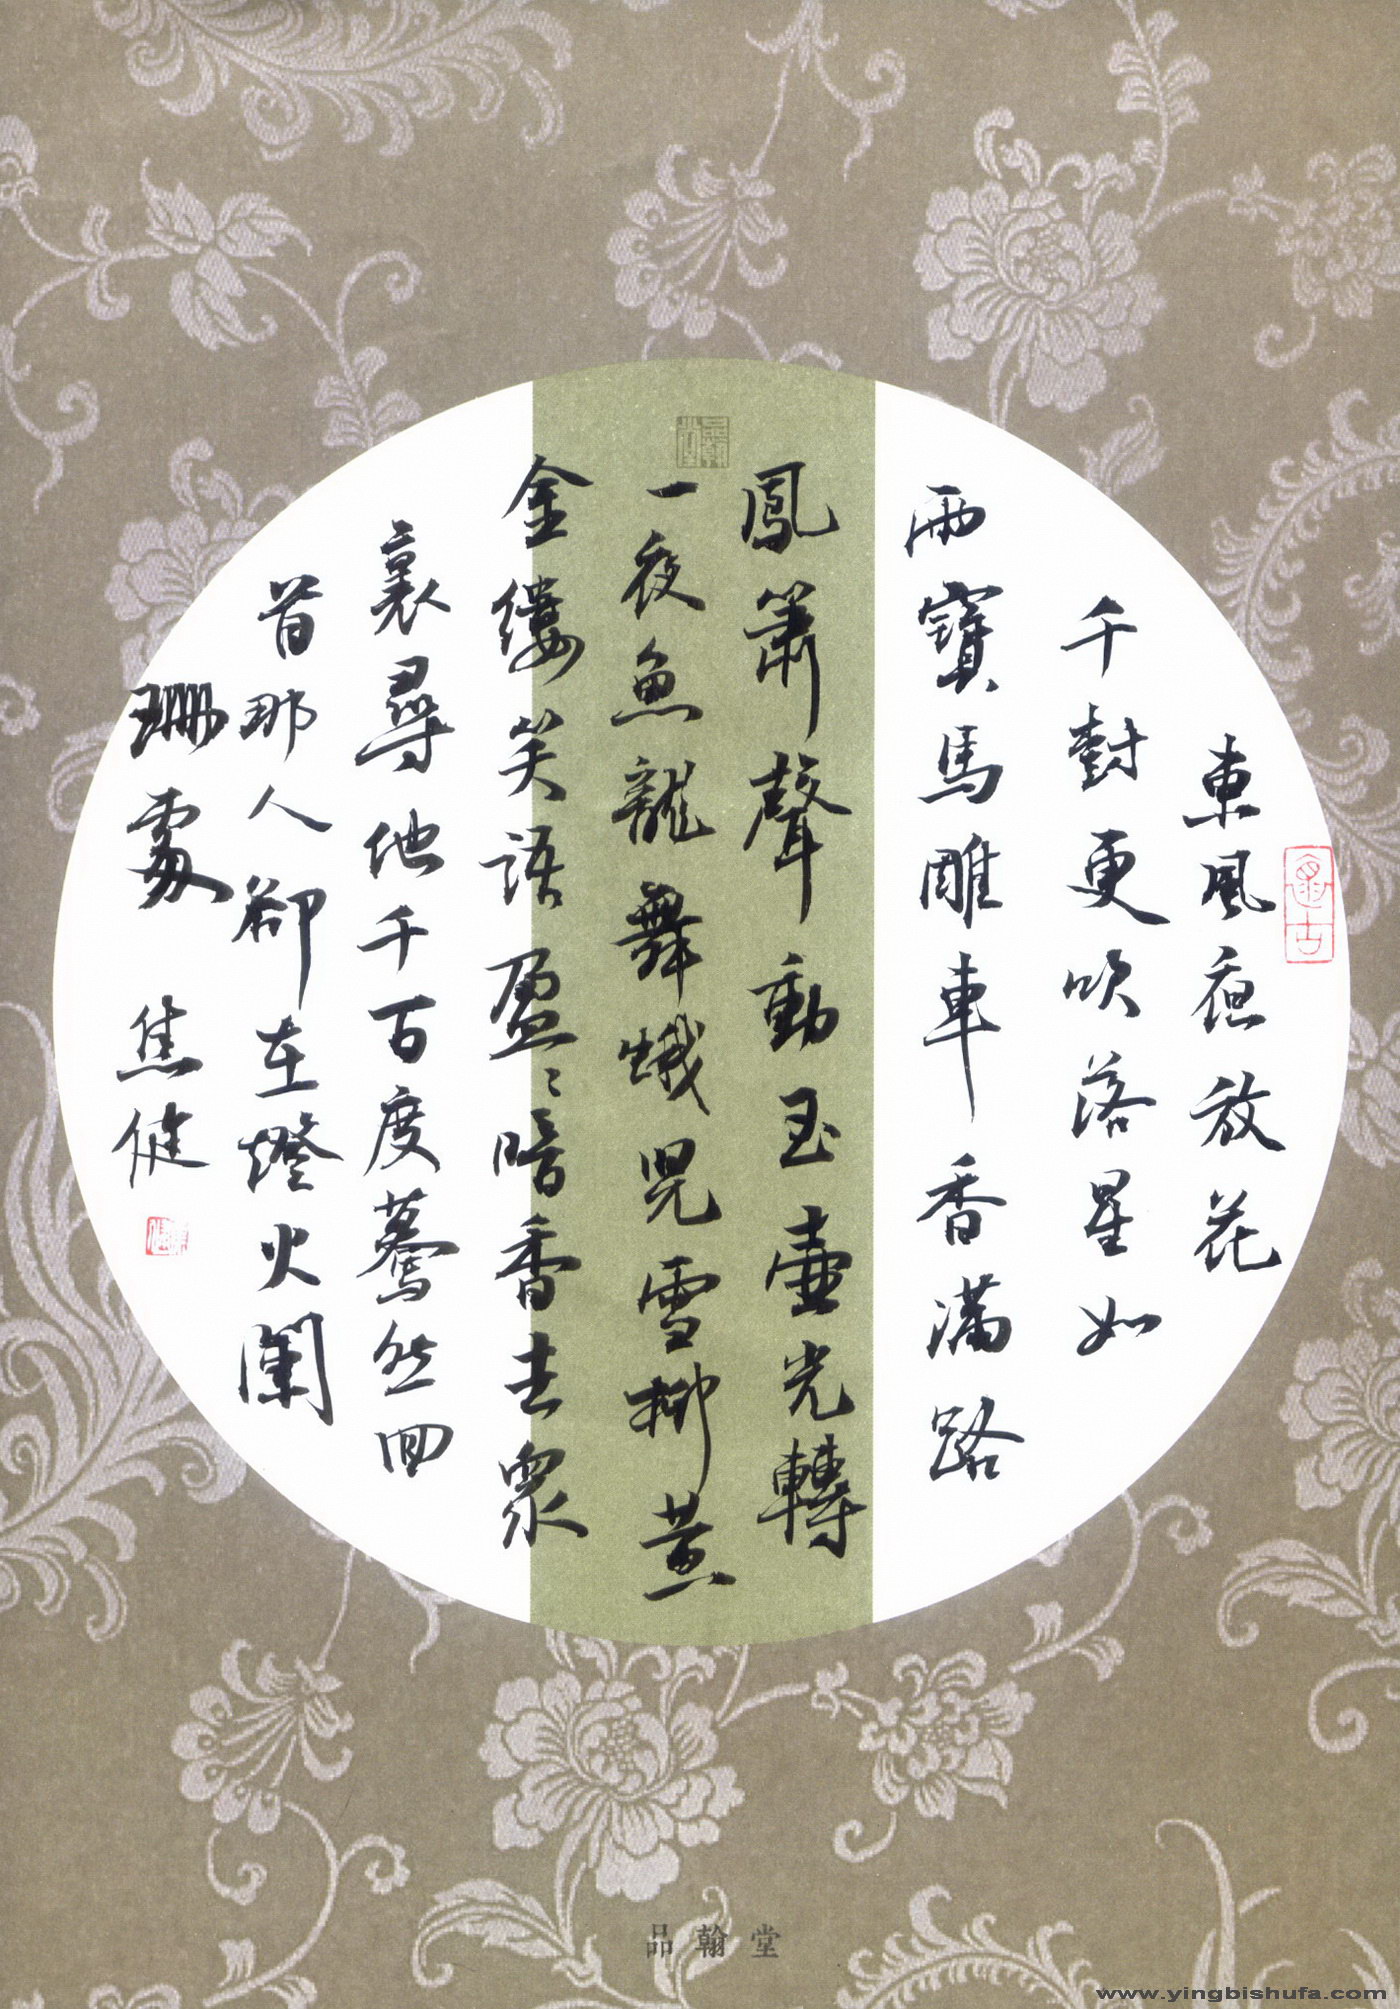 東風夜放花
千樹更吹落星如
雨寶馬雕車香滿路
鳳簫聲動玉壺光轉
一夜魚龍舞蛾兒雪柳黃
金縷笑語盈〻暗香去眾
裏尋他千百度驀然回
首那人卻在燈火闌
珊處 焦健
品翰堂
www.yingbishufa.com